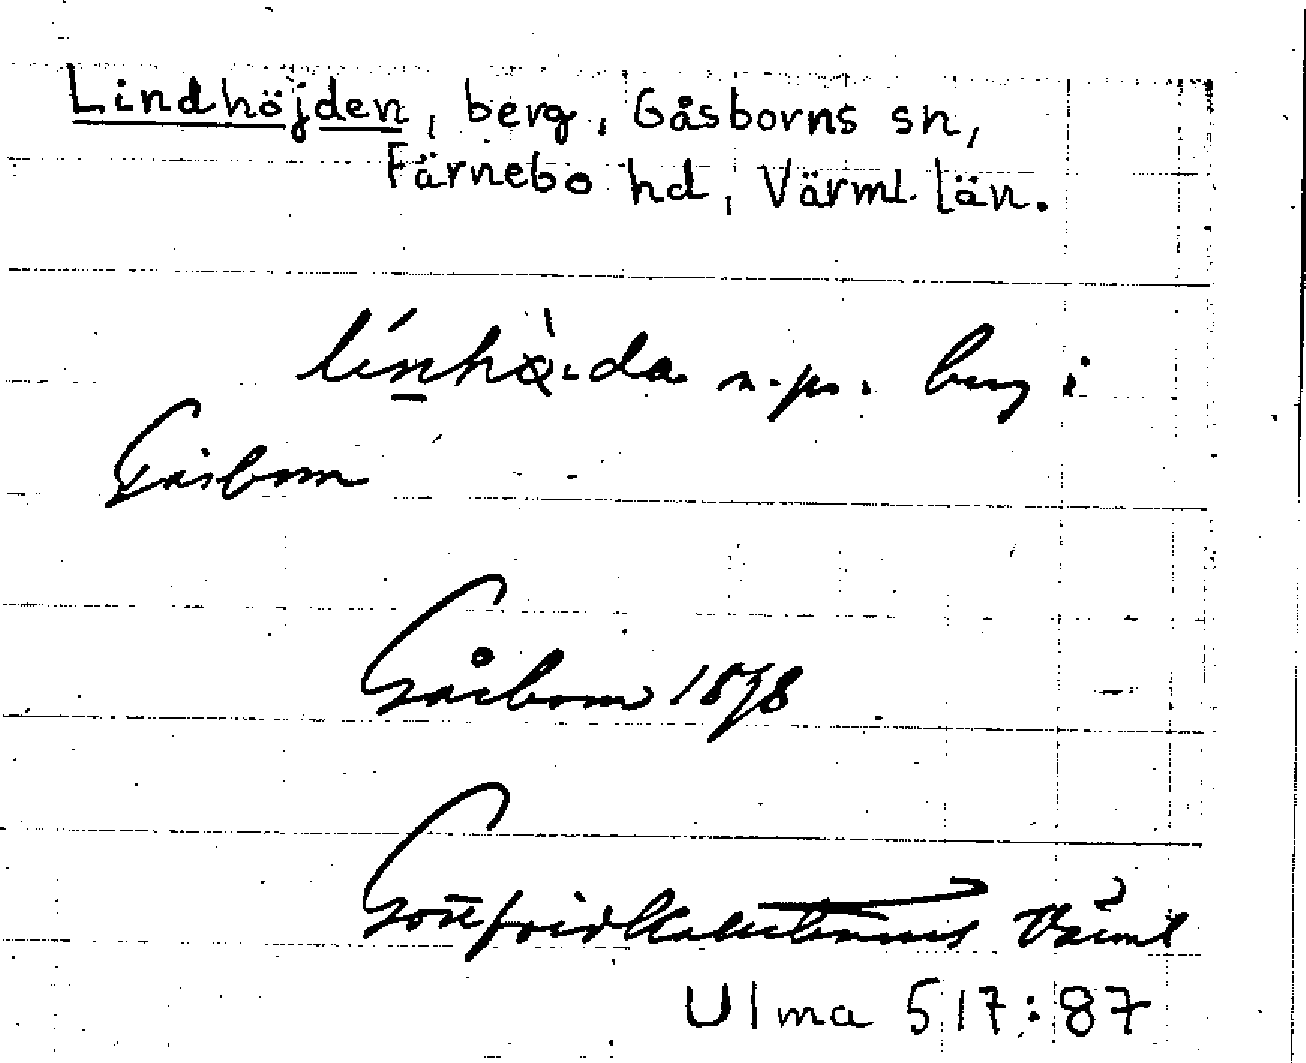 Lindhöjden, berg, Gåsborns sn,
Färnebo hd, Värml. län.
berg i
Gåsborn
Gåsborn 1878
Gottfrid Kallstenius Värml
Ulma 517:87